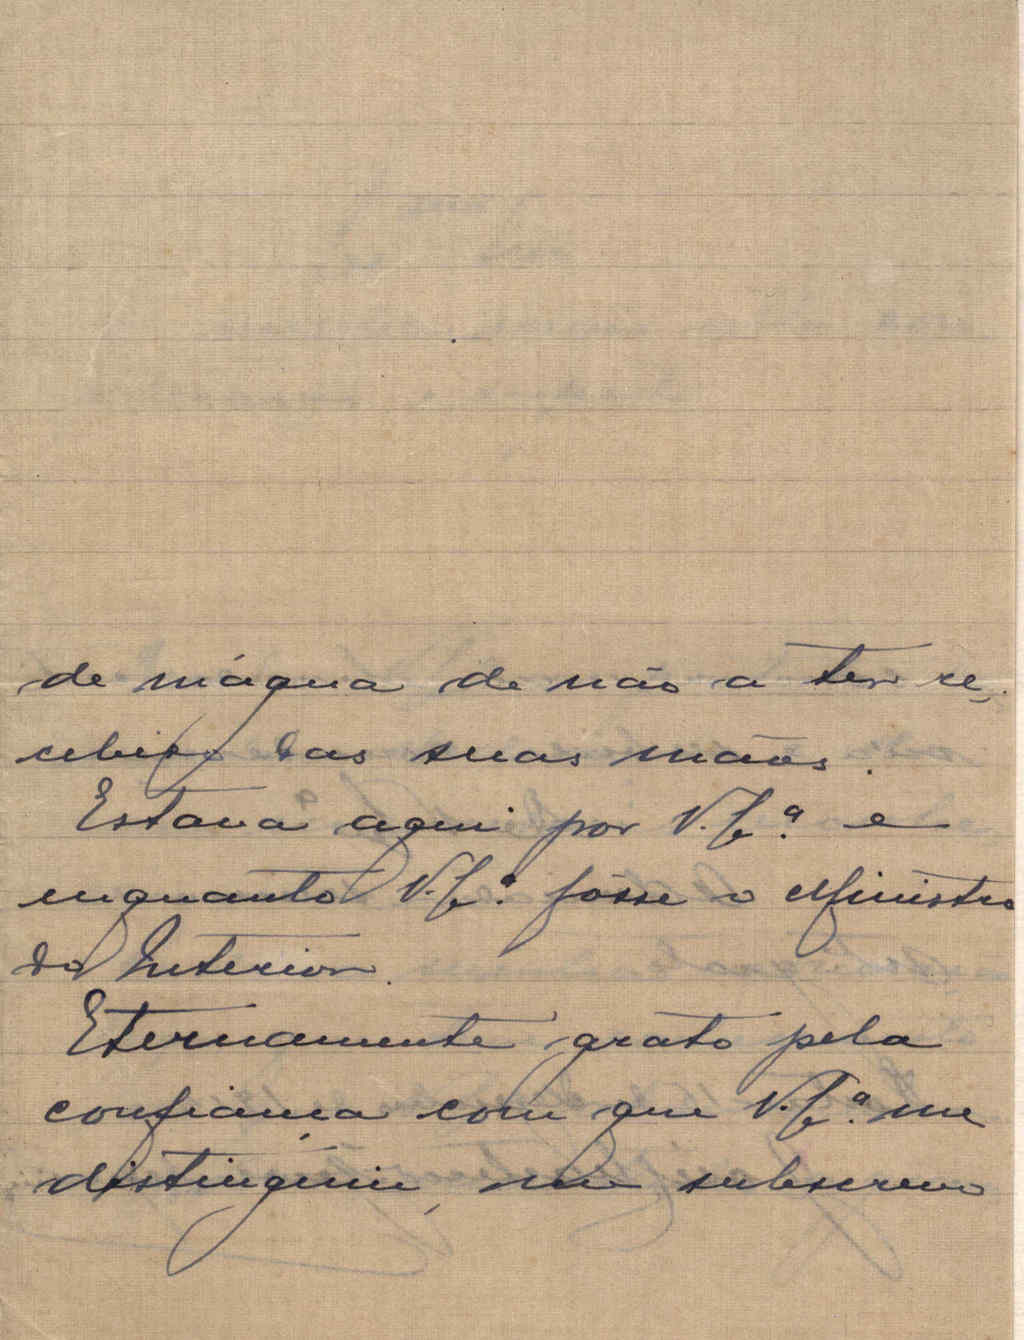 de mágua de não a ter re-
cebido das suas mãos.
Estava aqui por V. Ex.ª e
enquanto V. Ex.ª fôsse o Ministro
do Interior.
Eternamente grato pela
confiança com que V. Ex.ª me
distinguiu, me subscrevo